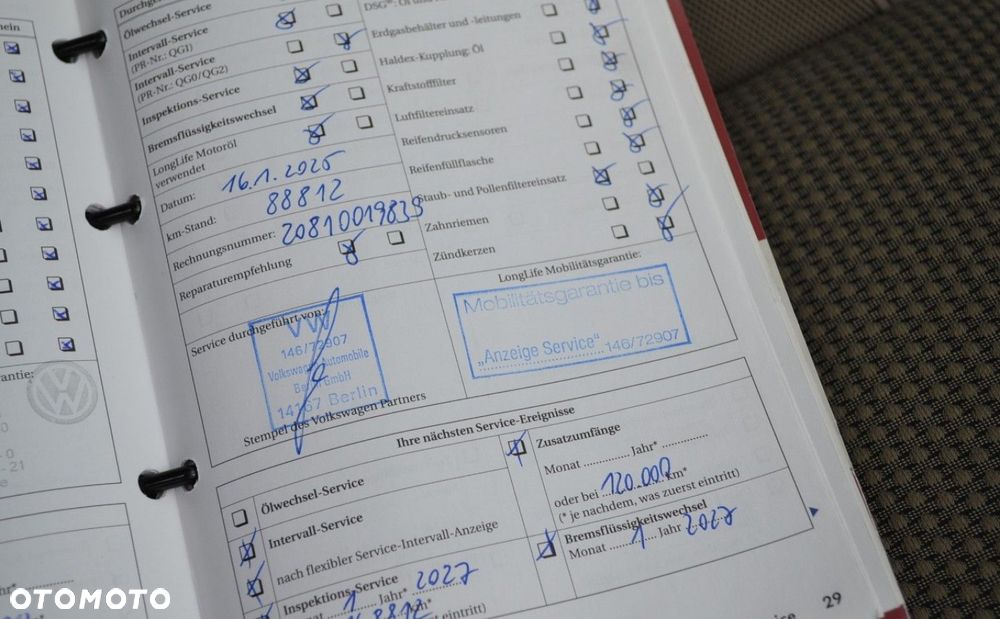 Ölwechsel-Service
Intervall-Service
(PR-Nr.: QG1)
Intervall-Service
(PR-Nr.: QG0/QG2)
Inspektions-Service
Bremsflüssigkeitswechsel
LongLife Motoröl
verwendet
Datum: 16.1.2025
km-Stand: 88812
Rechnungsnummer:
Reparaturempfehlung
Erdgasbehälter und -leitungen
Haldex-Kupplung: Öl
Kraftstofffilter
Luftfiltereinsatz
Reifendrucksensoren
Reifenfüllflasche
Staub- und Pollenfiltereinsatz
Zahnriemen
Zündkerzen
Service durchgeführt von:
VW
146/72907
Volkswagen Automobile
Berlin GmbH
14167 Berlin
Stempel des Volkswagen Partners
LongLife Mobilitätsgarantie:
Mobilitätsgarantie bis
„Anzeige Service“ 146/72907
Ihre nächsten Service-Ereignisse
Ölwechsel-Service
Intervall-Service
nach flexibler Service-Intervall-Anzeige
Inspektions-Service
1 Jahr* 2027
Zusatzumfänge
Monat ............. Jahr* .............
oder bei 120.000 km*
(* je nachdem, was zuerst eintritt)
Bremsflüssigkeitswechsel
Monat 1 Jahr 2027
29
OTOMOTO